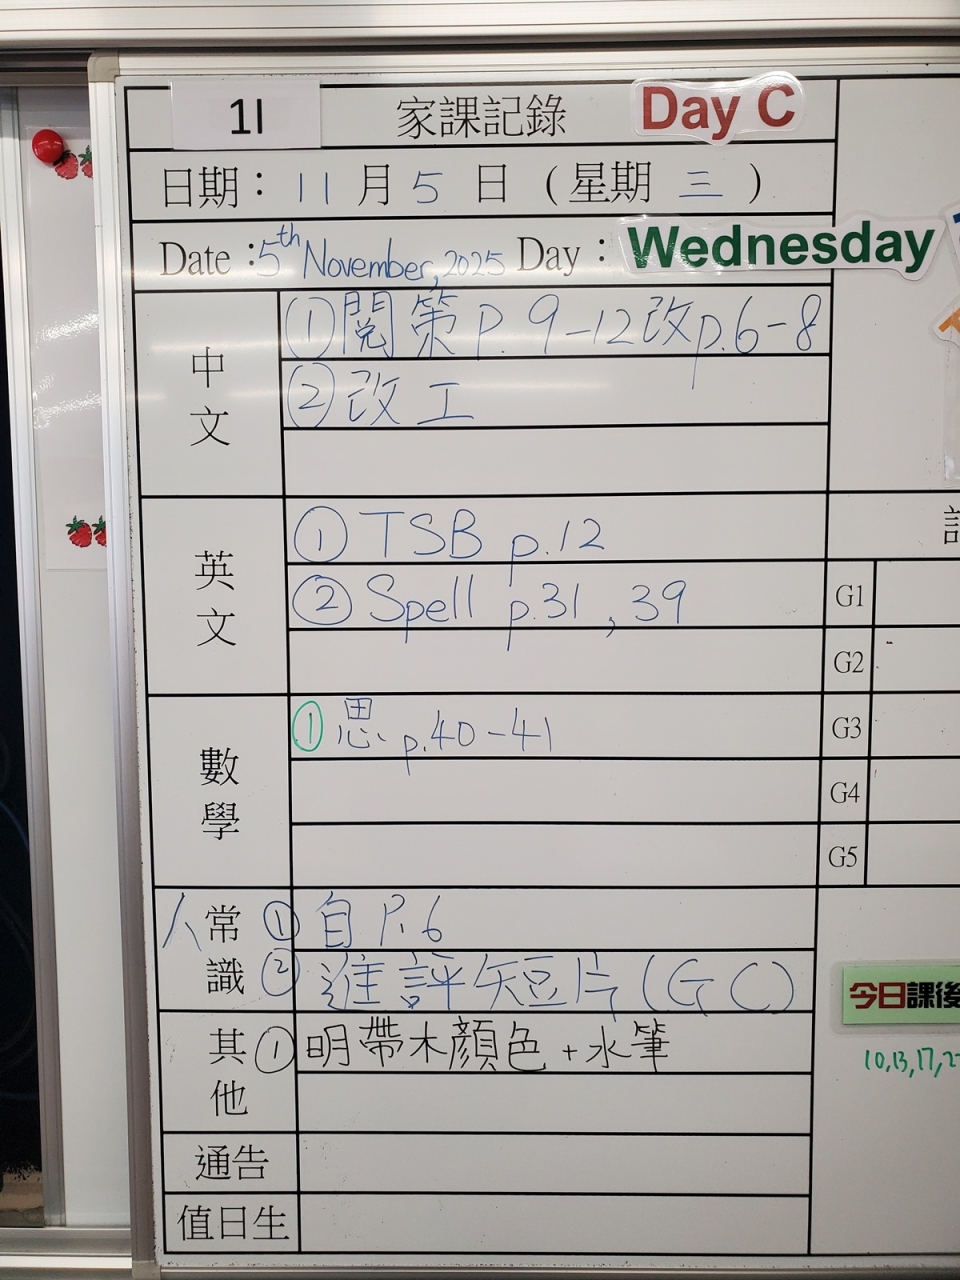 1I 家課記錄 Day C
日期： 11 月 5 日 （星期 三 ）
Date : 5th November, 2025 Day : Wednesday
中文
① 閱策 P. 9-12 改p.6-8
② 改工
英文
① TSB p.12
② Spell p.31, 39
G1
G2
數學
① 思 p.40-41
G3
G4
G5
人 常識
① 自 P.6
② 進評短片(GC)
今日課後
10,13,17,2
其他
① 明帶木顏色+水筆
通告
值日生